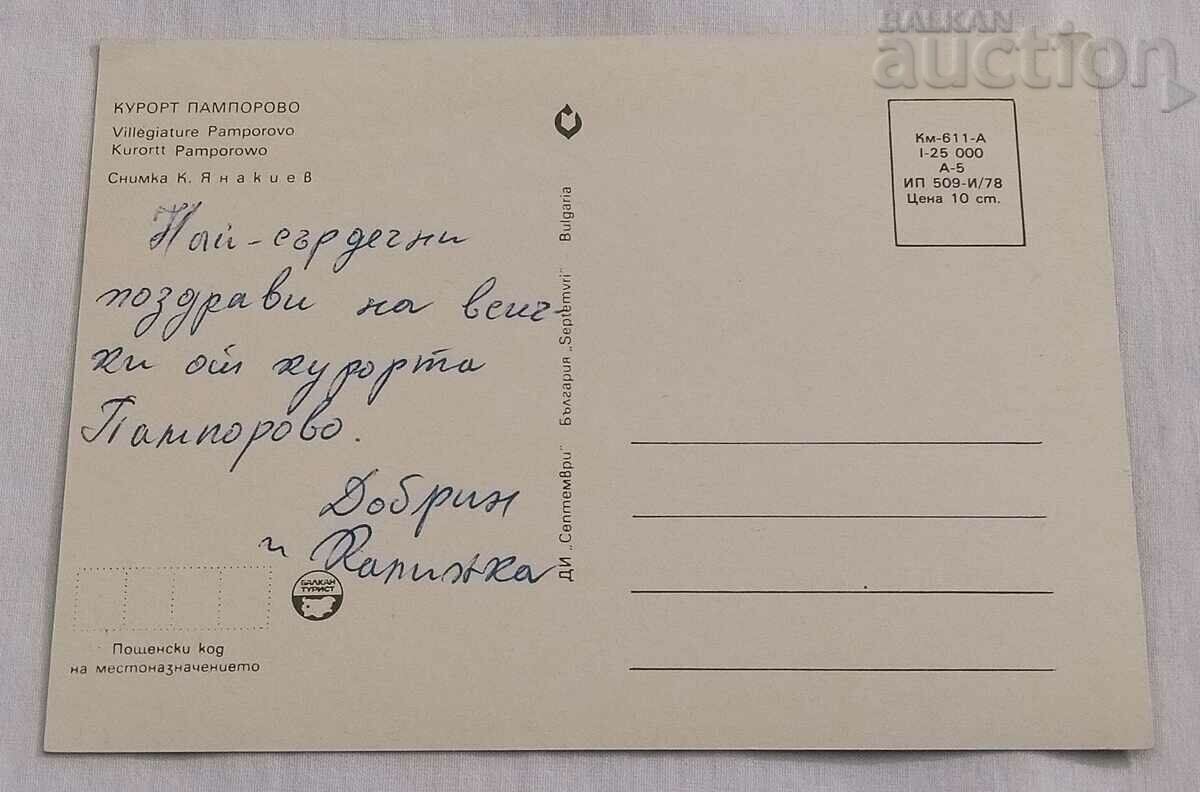 BALKAN
auction
КУРОРТ ПАМПОРОВО
Villégiature Pamporovo
Kurortt Pamporowo
Снимка К. Янакиев
Най-сърдечни
поздрави на всич-
ки от курорта
Пампорово.
Добрин
и
БАЛКАН
ТУРИСТ
Пощенски код
на местоназначението
ДИ „Септември" България „Septemvri" - Bulgaria
Км-611-А
I-25 000
А-5
ИП 509-И/78
Цена 10 ст.